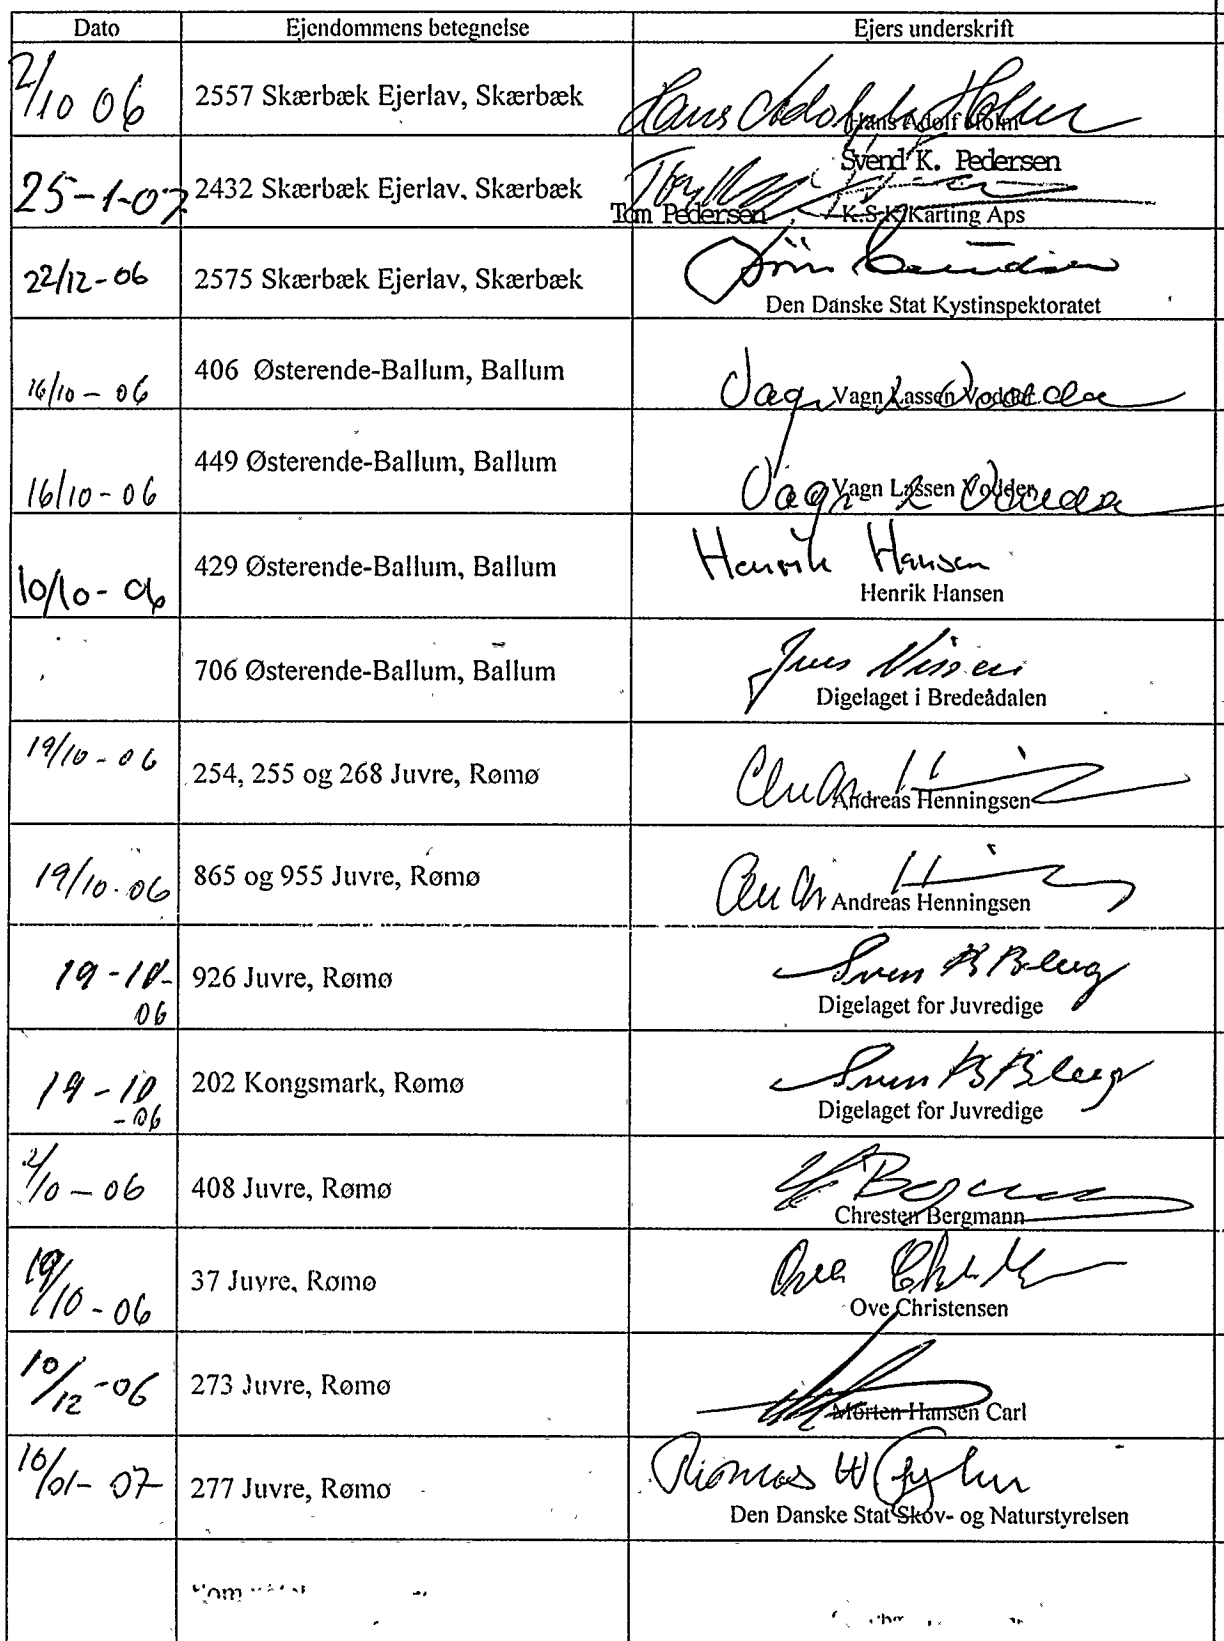 Dato Ejendommens betegnelse Ejers underskrift
2/10 06 2557 Skærbæk Ejerlav, Skærbæk Hans Adolf Holm
Hans Adolf Holm
Svend K. Pedersen
25-1-07 2432 Skærbæk Ejerlav, Skærbæk
Tom Pedersen K.S.K Karting Aps
22/12-06 2575 Skærbæk Ejerlav, Skærbæk
Den Danske Stat Kystinspektoratet
406 Østerende-Ballum, Ballum
16/10-06 Vagn Lassen Vodder
449 Østerende-Ballum, Ballum
16/10-06 Vagn Lassen Vodder
Henrik Hansen
10/10-06 429 Østerende-Ballum, Ballum
Henrik Hansen
706 Østerende-Ballum, Ballum Jens Nissen
Digelaget i Bredeådalen
19/10-06 254, 255 og 268 Juvre, Rømø
Andreas Henningsen
19/10-06 865 og 955 Juvre, Rømø
Andreas Henningsen
19-10- 926 Juvre, Rømø Sven
06 Digelaget for Juvredige
19-10 202 Kongsmark, Rømø Sven
-06 Digelaget for Juvredige
2/10-06 408 Juvre, Rømø
Chresten Bergmann
19/10-06 37 Juvre, Rømø Ove
Ove Christensen
10/12-06 273 Juvre, Rømø
Morten Hansen Carl
10/01-07 277 Juvre, Rømø Thomas
Den Danske Stat Skov- og Naturstyrelsen